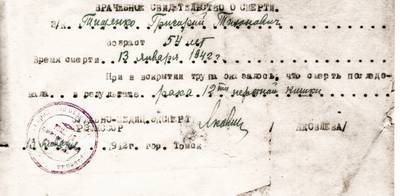 ВРАЧЕБНОЕ СВИДЕТЕЛЬСТВО О СМЕРТИ.
З/К. Тищенко Григорий Тихонович
возраст 54 лет
Время смерти. 13 января 1942 г
При вскрытии трупа оказалось, что смерть последо-
вала в результате рака 12ти перстной кишки
СУДЕБНО-МЕДИЦ. ЭКСПЕРТ
ПРОФЕССОР /ЯКОВЛЕВА/
1942г. гор. Томск